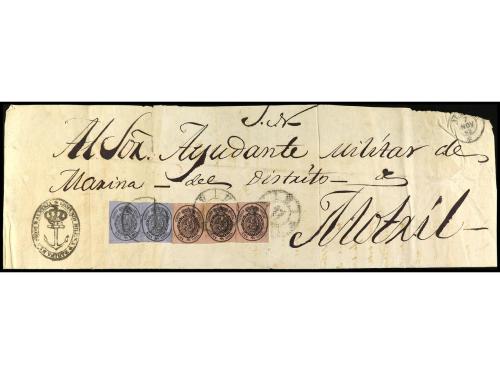 S. N.
Al Sor. Ayudante militar de
Marina - del Distrito - de
Motril -
NOV